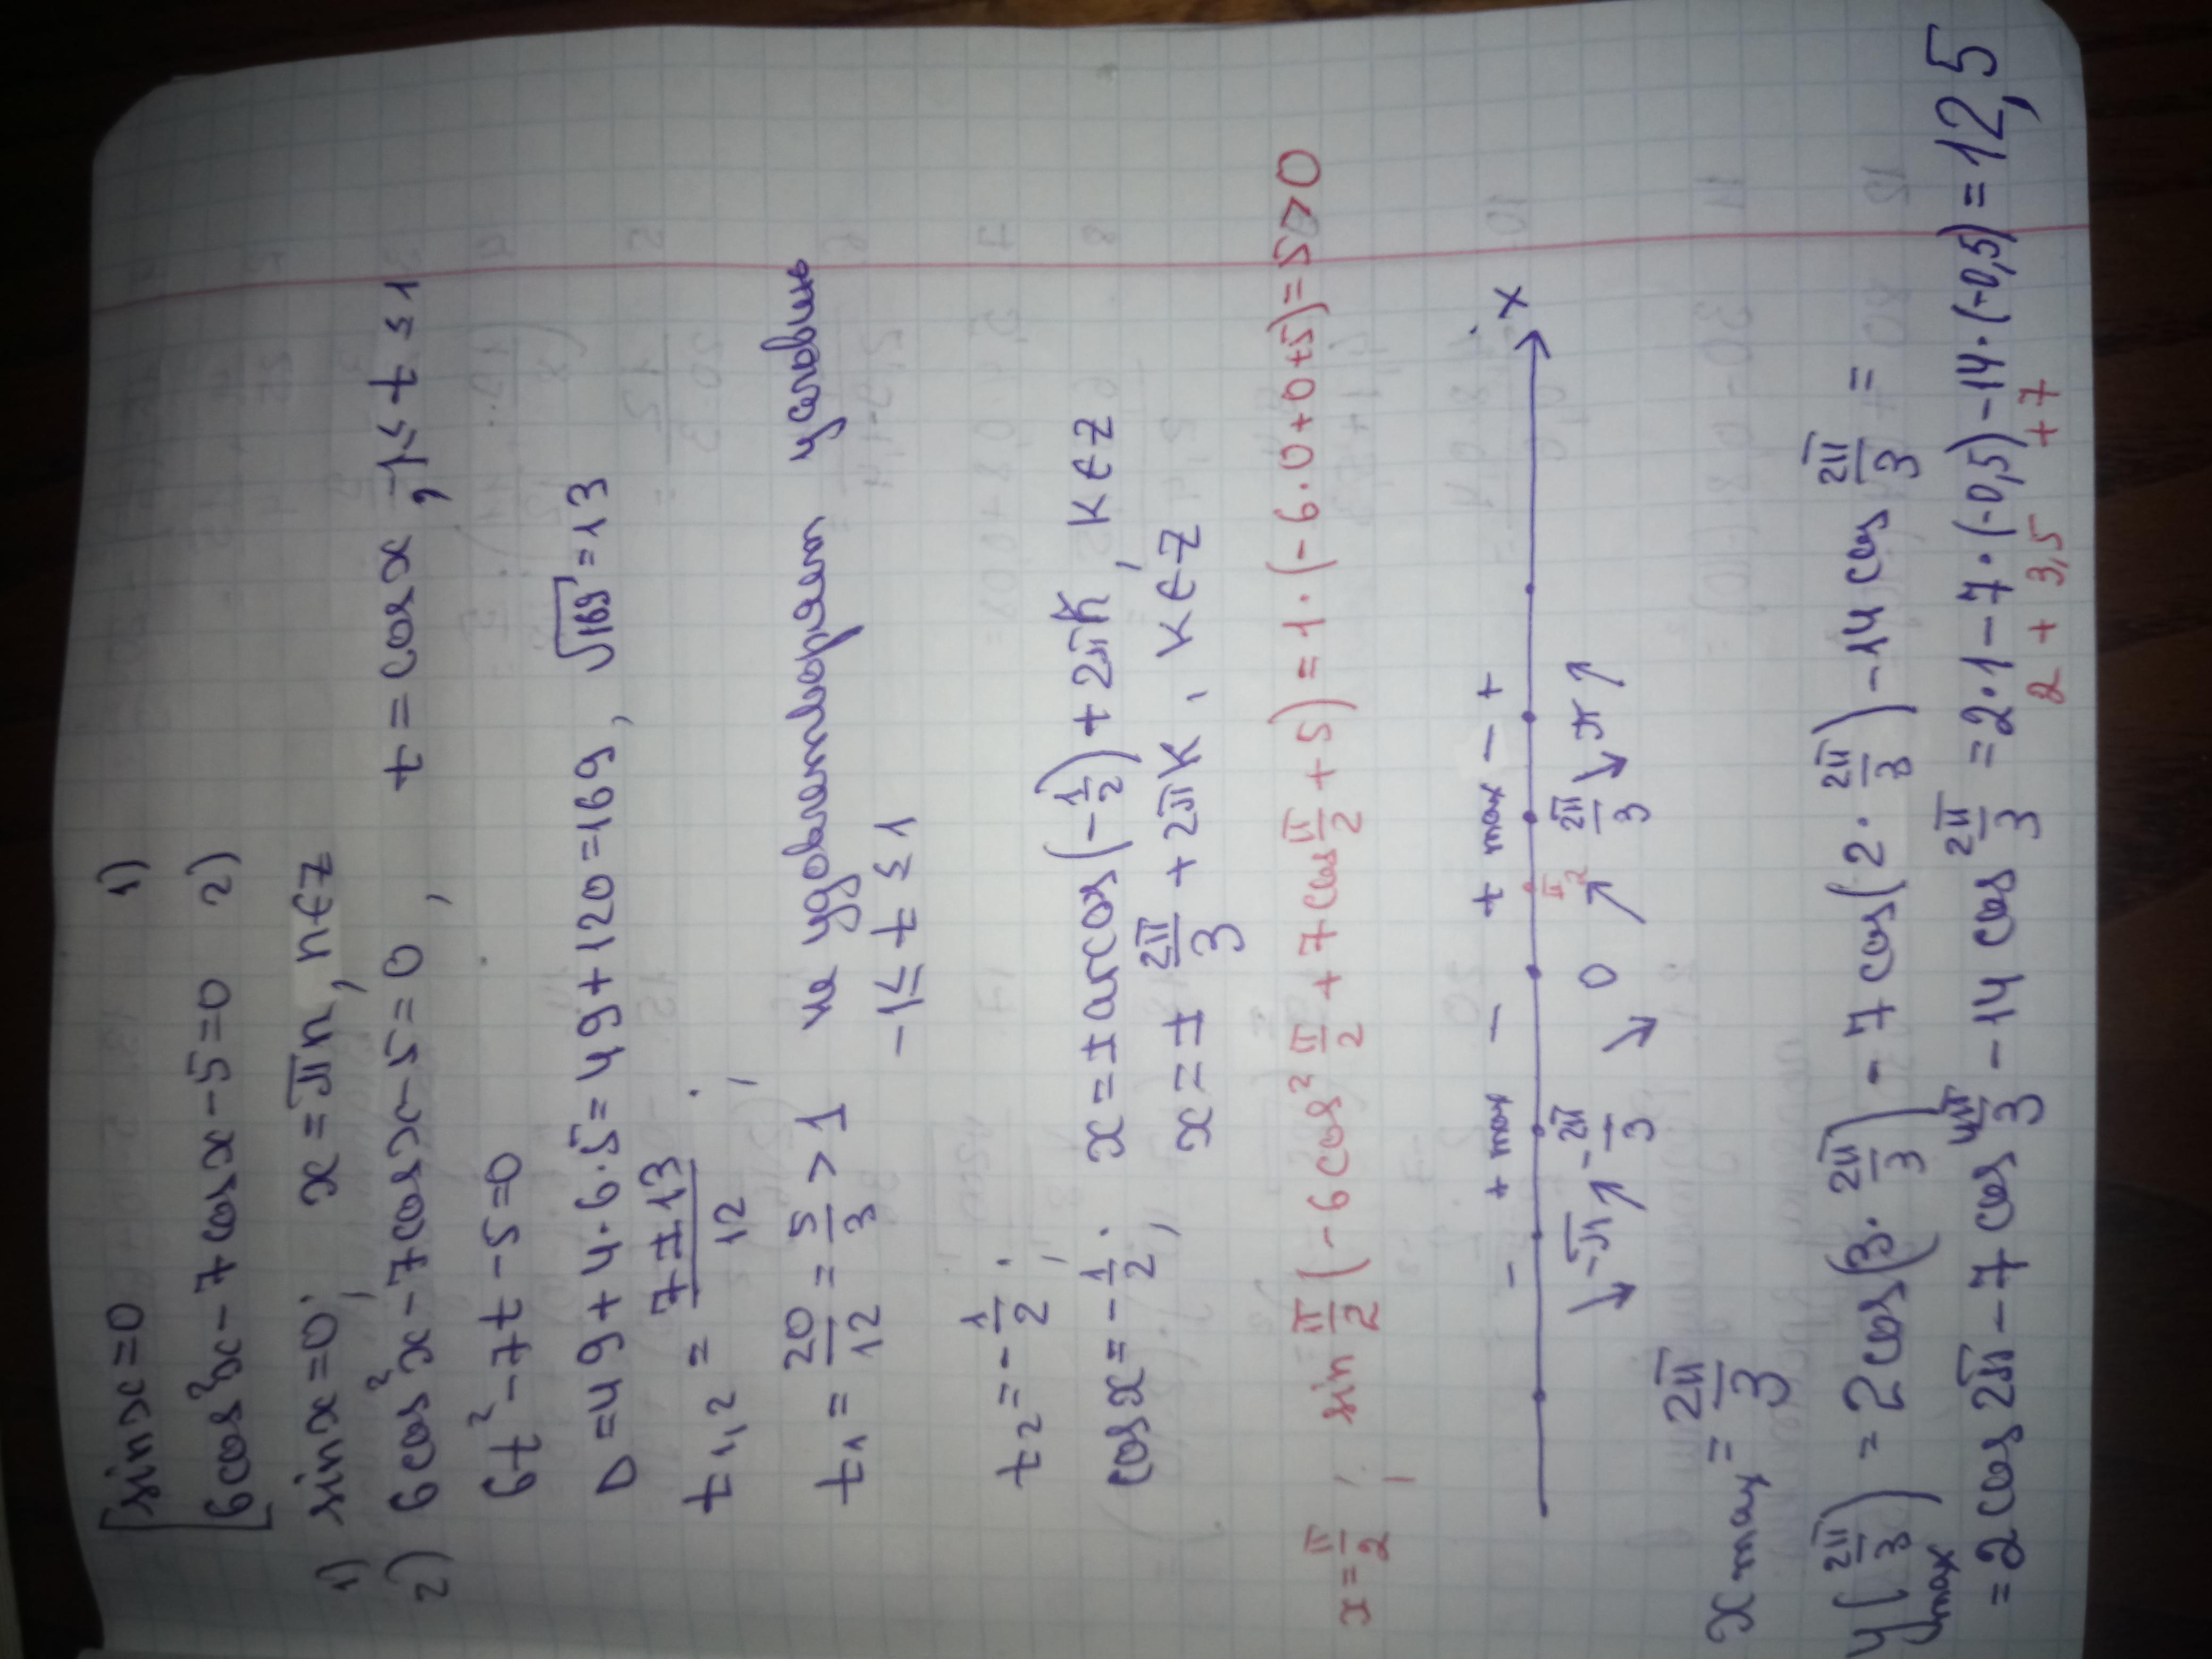 [sinx=0 1)
6cos²x-7cosx-5=0 2)
1) sinx=0; x=πn, n∈z
2) 6cos²x-7cosx-5=0, t=cosx, -1≤t≤1
6t²-7t-5=0
D=49+4·6·5=49+120=169, √169=13
t1,2 = (7±13)/12;
t1 = 20/12 = 5/3 > 1 не удовлетворяет условию
-1≤t≤1
t2=-1/2;
cosx=-1/2; x=±arcos(-1/2)+2πk, k∈z
x=±2π/3+2πk, k∈z
x=π/2; sin π/2(-6cos² π/2+7cos π/2+5)=1·(-6·0+0+5)=5>0
- + max - + max - + x
↘ -π ↗ -2π/3 ↘ 0 ↗ π/2 2π/3 ↘ π ↗
x max = 2π/3
y max(2π/3) = 2cos(3·2π/3)-7cos(2·2π/3)-14cos 2π/3 =
=2cos2π-7cos 4π/3-14cos 2π/3 =2·1-7·(-0,5)-14·(-0,5)=12,5
2 + 3,5 +7